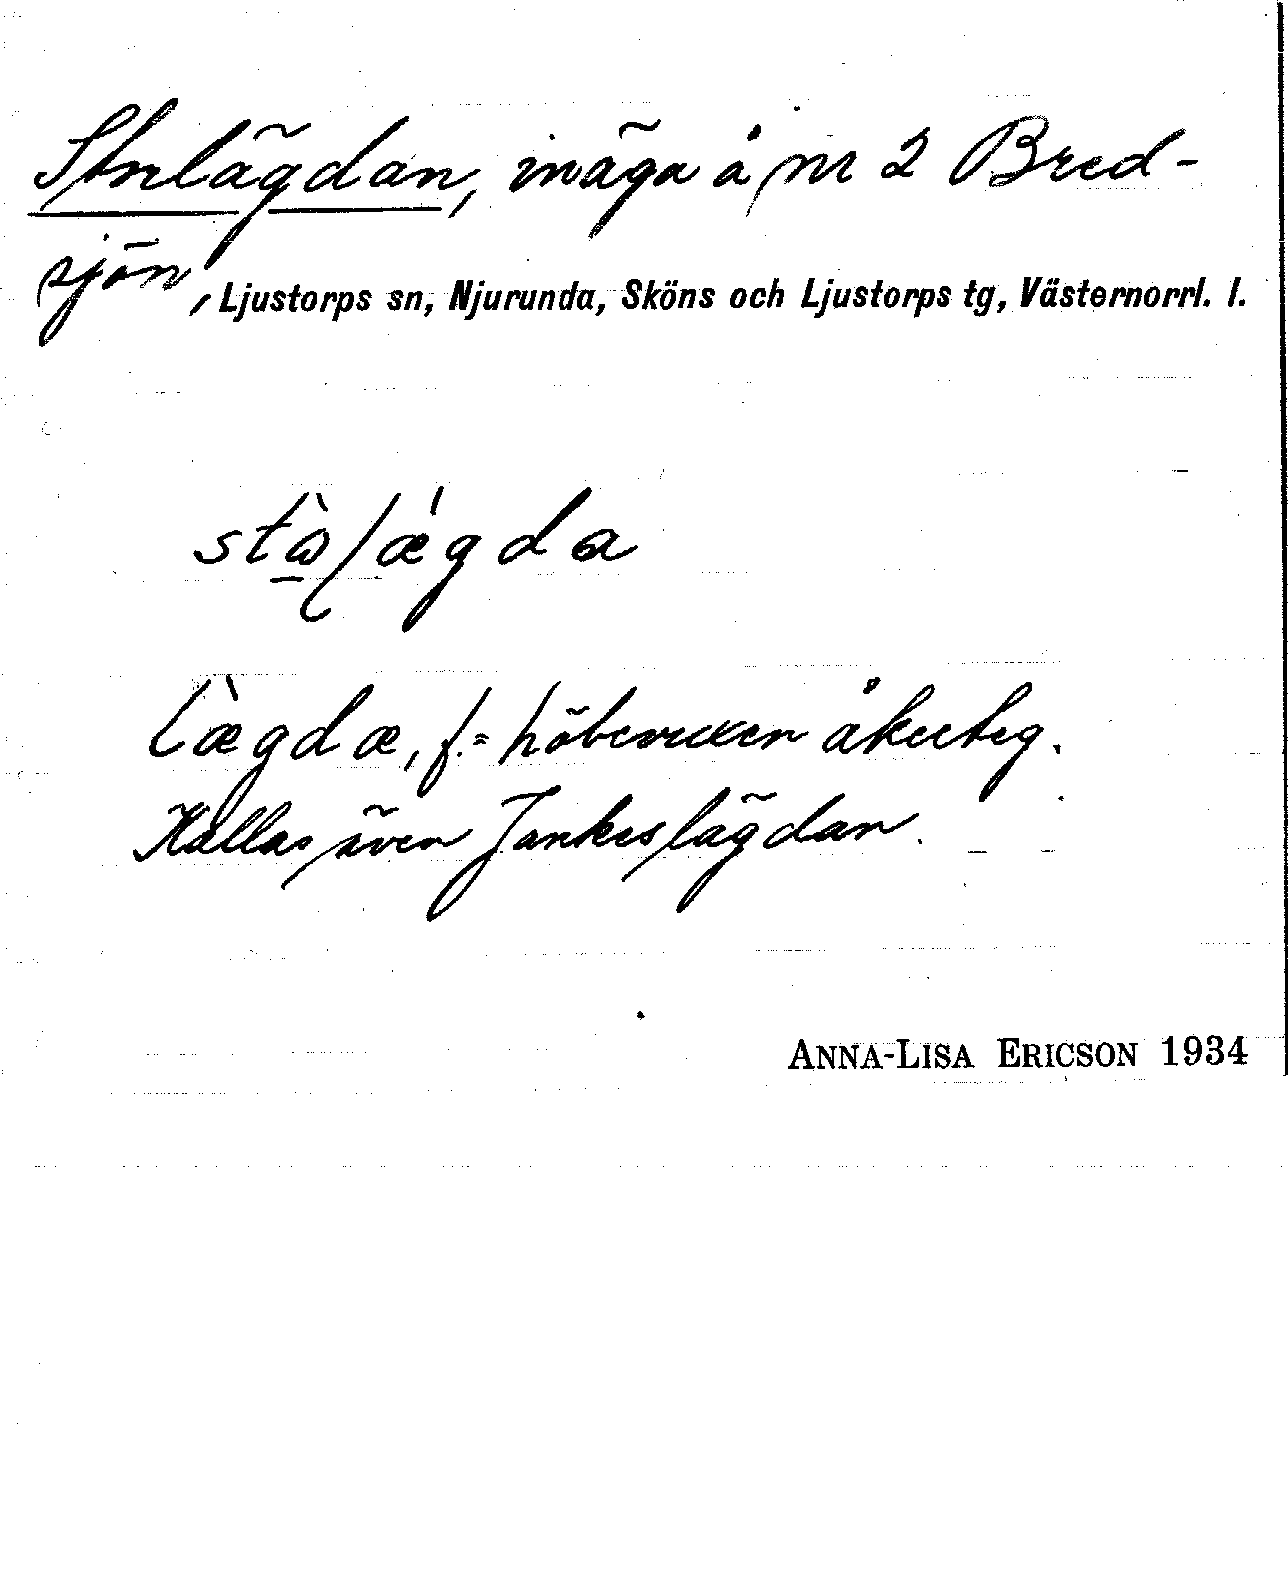 Storlägdan, inäga å nr 2 Bred-
sjön, Ljustorps sn, Njurunda, Sköns och Ljustorps tg, Västernorrl. l.
lægdæ, f. = höbevuxen åkerteg.
Kallas även Jankeslägdan.
ANNA-LISA ERICSON 1934